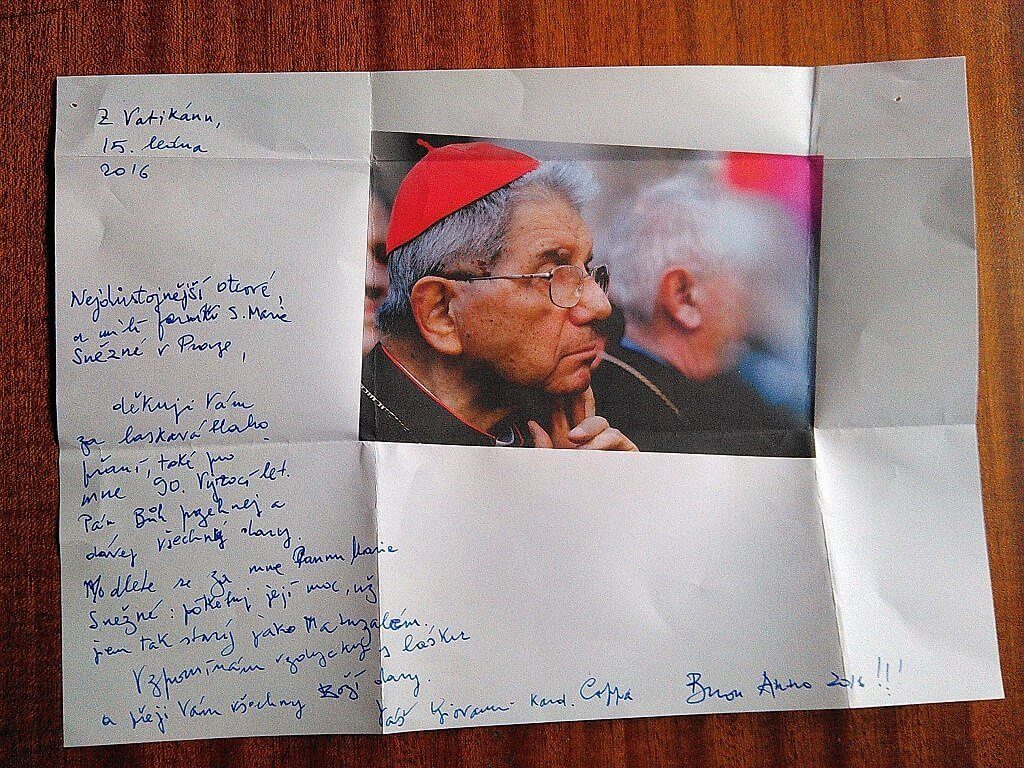 Z Vatikánu,
15. ledna
2016
Nejdůstojnější otcové,
a milí farníků S. Marie
Sněžné v Praze,
děkuji Vám
za laskavá Mnoho
přání, také pro
mne 90. Výročí let.
Pán Bůh požehnej a
dávej všechny dary.
Modlete se za mne Pannu Marie
Sněžné: potřebuji její moc, už
jsem tak starý jako Matuzalém.
Vzpomínám vždycky s láskou
a přeji Vám všechny Boží dary.
Váš Giovanni Kard. Coppa
Buon Anno 2016 !!!